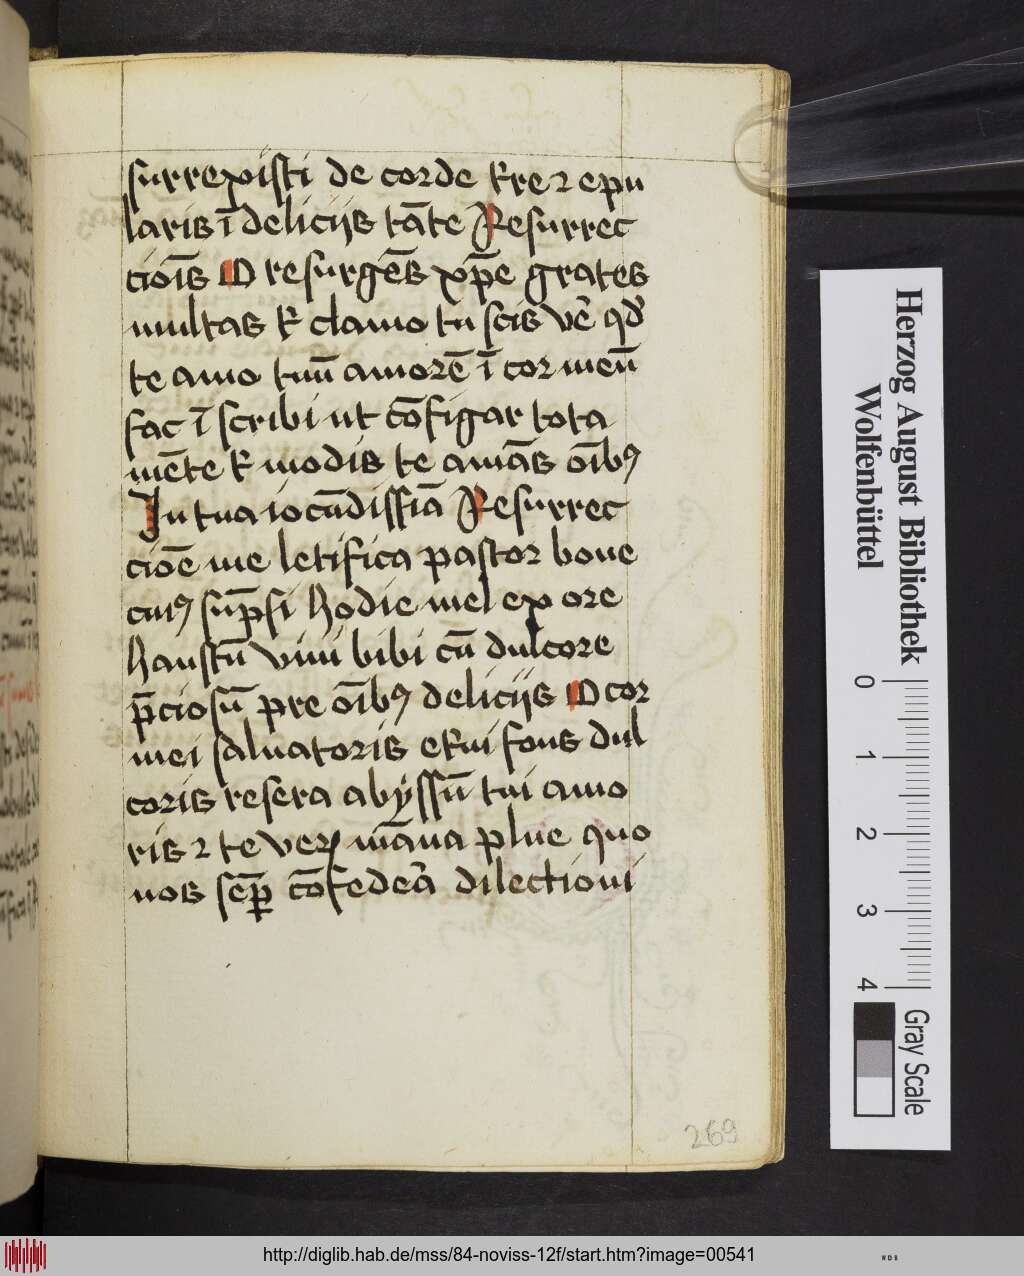 surrexisti de corde terre ⁊ epu
laris ī delicijs tāte Resurrec
cioīs O resurgēs xp̄e grates
multas et clamo tu scis ve᷑ qd᷑
te amo tuū amorē ī cor meū
fac ī scribi ut cōfigar tota
mēte et modis te amās oīb⁹
In tua iocūdissīa Resurrec
cioē me letifica pastor bone
cui⁹ sūpsi hodie mel ex ore
haustū viui bibi cū dulcore
p̄ciosū pre oīb⁹ delicijs O cor
mei saluatoris etui fons dul
coris resera abyssū tui amo
ris ⁊ te verꝰ māna plue quo
nos sēp̲ cōfedeā dilectioni
269
Herzog August Bibliothek
Wolfenbüttel
0
1
2
3
4
Gray Scale
http://diglib.hab.de/mss/84-noviss-12f/start.htm?image=00541